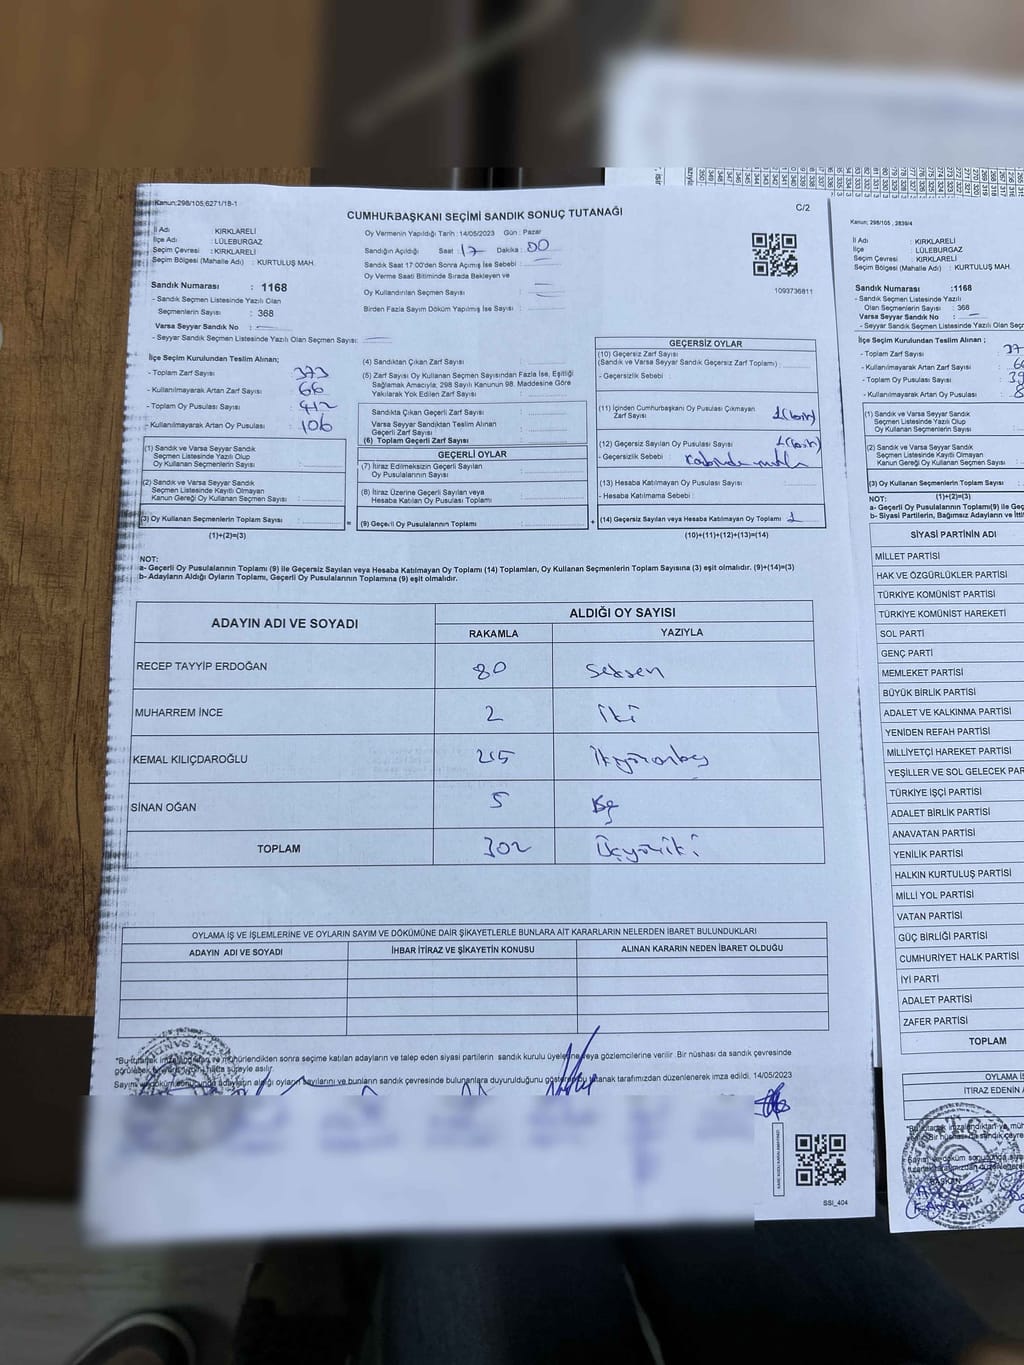 Kanun;298/105,6271/18-1
C/2
CUMHURBAŞKANI SEÇİMİ SANDIK SONUÇ TUTANAĞI
İl Adı : KIRKLARELİ
İlçe Adı : LÜLEBURGAZ
Seçim Çevresi : KIRKLARELİ
Seçim Bölgesi (Mahalle Adı) : KURTULUŞ MAH.
Sandık Numarası : 1168
- Sandık Seçmen Listesinde Yazılı Olan
Seçmenlerin Sayısı : 368
Varsa Seyyar Sandık No :
- Seyyar Sandık Seçmen Listesinde Yazılı Olan Seçmen Sayısı:
Oy Vermenin Yapıldığı Tarih : 14/05/2023 Gün : Pazar
Sandığın Açıldığı Saat : 17 Dakika : 00
Sandık Saat 17:00'den Sonra Açımış İse Sebebi :
Oy Verme Saati Bitiminde Sırada Bekleyen ve
Oy Kullandırılan Seçmen Sayısı :
Birden Fazla Sayım Döküm Yapılmış İse Sayısı :
1093736811
İlçe Seçim Kurulundan Teslim Alınan ;
- Toplam Zarf Sayısı : 373
- Kullanılmayarak Artan Zarf Sayısı : 66
- Toplam Oy Pusulası Sayısı : 412
- Kullanılmayarak Artan Oy Pusulası : 106
(1) Sandık ve Varsa Seyyar Sandık
Seçmen Listesinde Yazılı Olup
Oy Kullanan Seçmenlerin Sayısı :
(2) Sandık ve Varsa Seyyar Sandık
Seçmen Listesinde Kayıtlı Olmayan
Kanun Gereği Oy Kullanan Seçmen Sayısı :
(3) Oy Kullanan Seçmenlerin Toplam Sayısı :
(1)+(2)=(3)
(4) Sandıktan Çıkan Zarf Sayısı :
(5) Zarf Sayısı Oy Kullanan Seçmen Sayısından Fazla İse, Eşitliği
Sağlamak Amacıyla, 298 Sayılı Kanunun 98. Maddesine Göre
Yakılarak Yok Edilen Zarf Sayısı :
Sandıkta Çıkan Geçerli Zarf Sayısı :
Varsa Seyyar Sandıktan Teslim Alınan
Geçerli Zarf Sayısı :
(6) Toplam Geçerli Zarf Sayısı :
GEÇERLİ OYLAR
(7) İtiraz Edilmeksizin Geçerli Sayılan
Oy Pusulası Sayısı :
(8) İtiraz Üzerine Geçerli Sayılan veya
Hesaba Katılan Oy Pusulası Toplamı :
= (9) Geçerli Oy Pusulalarının Toplamı :
GEÇERSİZ OYLAR
(10) Geçersiz Zarf Sayısı
(Sandık ve Varsa Seyyar Sandık Geçersiz Zarf Toplamı) :
- Geçersizlik Sebebi :
(11) İçinden Cumhurbaşkanı Oy Pusulası Çıkmayan
Zarf Sayısı : 1(bir)
(12) Geçersiz Sayılan Oy Pusulası Sayısı : 1(bir)
- Geçersizlik Sebebi :
(13) Hesaba Katılmayan Oy Pusulası Sayısı :
- Hesaba Katılmama Sebebi :
+ (14) Geçersiz Sayılan veya Hesaba Katılmayan Oy Toplamı :
(10)+(11)+(12)+(13)=(14)
NOT:
a- Geçerli Oy Pusulalarının Toplamı (9) ile Geçersiz Sayılan veya Hesaba Katılmayan Oy Toplamı (14) Toplamları, Oy Kullanan Seçmenlerin Toplam Sayısına (3) eşit olmalıdır. (9)+(14)=(3)
b- Adayların Aldığı Oyların Toplamı, Geçerli Oy Pusulalarının Toplamına (9) eşit olmalıdır.
ADAYIN ADI VE SOYADI
ALDIĞI OY SAYISI
RAKAMLA YAZIYLA
RECEP TAYYİP ERDOĞAN 80 Seksen
MUHARREM İNCE 2 İki
KEMAL KILIÇDAROĞLU 215 İkiyüzonbeş
SİNAN OĞAN 5 Beş
TOPLAM 302 Üçyüziki
OYLAMA İŞ VE İŞLEMLERİNE VE OYLARIN SAYIM VE DÖKÜMÜNE DAİR ŞİKAYETLERLE BUNLARA AİT KARARLARIN NELERDEN İBARET BULUNDUKLARI
ADAYIN ADI VE SOYADI İHBAR İTİRAZ VE ŞİKAYETİN KONUSU ALINAN KARARIN NEDEN İBARET OLDUĞU
mühürlendikten sonra seçime katılan adayların ve talep eden siyasi partilerin sandık kurulu üyelerine veya gözlemcilerine verilir .Bir nüshası da sandık çevresinde
asılır.
14/05/2023
SSI_404
Kanun; 298/105 , 2839/4
İl Adı : KIRKLARELİ
İlçe : LÜLEBURGAZ
Seçim Çevresi : KIRKLARELİ
Seçim Bölgesi (Mahalle Adı) : KURTULUŞ MAH.
Sandık Numarası :1168
- Sandık Seçmen Listesinde Yazılı
Olan Seçmenlerin Sayısı : 368
Varsa Seyyar Sandık No :
- Seyyar Sandık Seçmen Listesinde Yazılı Olan
İlçe Seçim Kurulundan Teslim Alınan ;
- Toplam Zarf Sayısı :
- Kullanılmayarak Artan Zarf Sayısı :
- Toplam Oy Pusulası Sayısı :
- Kullanılmayarak Artan Oy Pusulası :
(1) Sandık ve Varsa Seyyar Sandık
Seçmen Listesinde Yazılı Olup
Oy Kullanan Seçmenlerin Sayısı
(2) Sandık ve Varsa Seyyar Sandık
Seçmen Listesinde Kayıtlı Olmayan
Kanun Gereği Oy Kullanan Seçmen Sayısı
(3) Oy Kullanan Seçmenlerin Toplam Sayısı :
(1)+(2)=(3)
NOT:
a- Geçerli Oy Pusulalarının Toplamı(9) ile
b- Siyasi Partilerin, Bağımsız Adayların ve
SİYASİ PARTİNİN ADI
MİLLET PARTİSİ
HAK VE ÖZGÜRLÜKLER PARTİSİ
TÜRKİYE KOMÜNİST PARTİSİ
TÜRKİYE KOMÜNİST HAREKETİ
SOL PARTİ
GENÇ PARTİ
MEMLEKET PARTİSİ
BÜYÜK BİRLİK PARTİSİ
ADALET VE KALKINMA PARTİSİ
YENİDEN REFAH PARTİSİ
MİLLİYETÇİ HAREKET PARTİSİ
YEŞİLLER VE SOL GELECEK PAR
TÜRKİYE İŞÇİ PARTİSİ
ADALET BİRLİK PARTİSİ
ANAVATAN PARTİSİ
YENİLİK PARTİSİ
HALKIN KURTULUŞ PARTİSİ
MİLLİ YOL PARTİSİ
VATAN PARTİSİ
GÜÇ BİRLİĞİ PARTİSİ
CUMHURİYET HALK PARTİSİ
İYİ PARTİ
ADALET PARTİSİ
ZAFER PARTİSİ
TOPLAM
OYLAMA İŞ
İTİRAZ EDENİN